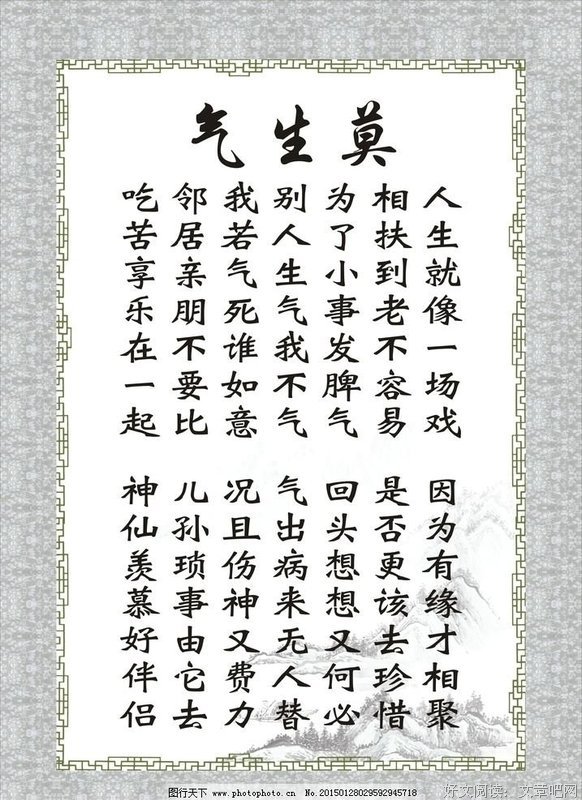 莫生气
人生就像一场戏
因为有缘才相聚
相扶到老不容易
是否更该去珍惜
为了小事发脾气
回头想想又何必
别人生气我不气
气出病来无人替
我若气死谁如意
况且伤神又费力
邻居亲朋不要比
儿孙琐事由它去
吃苦享乐在一起
神仙羡慕好伴侣
图行天下 www.photophoto.cn No.20150128029592945718
好文阅读：文章吧网